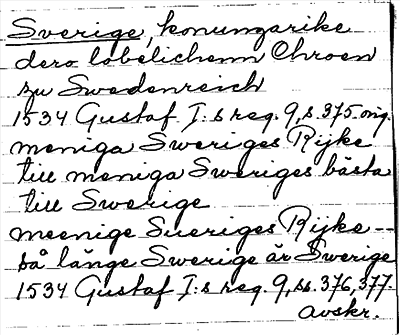 Sverige, konungarike
dero löbelichenn Chroen
zu Swedenreich
1534 Gustaf I:s reg. 9, s. 375. orig.
meniga Sweriges Rijke
till meniga Sweriges bästa
till Swerige
meenige Sueriges Rijke --
så länge Swerige är Swerige
1534 Gustaf I:s reg. 9, ss. 376, 377.
avskr.